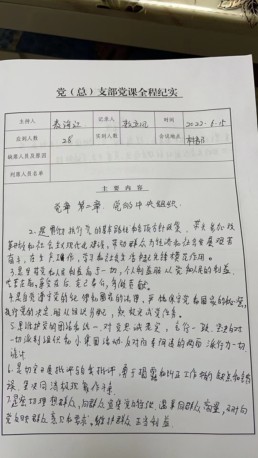 党（总）支部党课全程纪实
主持人 记录人 时间 2022.6.15
应到人数 28 实到人数 会议地点
缺席人员及原因
列席人员名单
主 要 内 容
党章 第二章 党的中央组织.
2.是贯彻执行党的基本路线和各项方针政策、带头参加改
革开放和社会主义现代化建设，带动群众为经济和社会发展艰苦
奋斗，在生产、工作、学习和社会生活中起先锋模范作用。
3.是坚持党和人民利益高于一切，个人利益服从党和人民的利益.
吃苦在前，享受在后，克己奉公，多做贡献.
4.是自觉遵守党的纪律和国家的法律，严格保守党和国家的秘密，
执行党的决定，服从组织分配，积极完成党的任务.
5.是维护党的团结和统一.对党忠诚老实，言行一致，坚决反对
一切派别组织和小集团活动.反对阳奉阴违的两面派行为和一切
6.是切实开展批评和自我批评，勇于揭露和纠正工作中的缺点和错
误，坚决同消极腐败作斗争.
7.是密切联系群众，向群众宣传党的主张，遇事同群众商量，及时向
党反映群众意见和要求，维护群众正当利益.